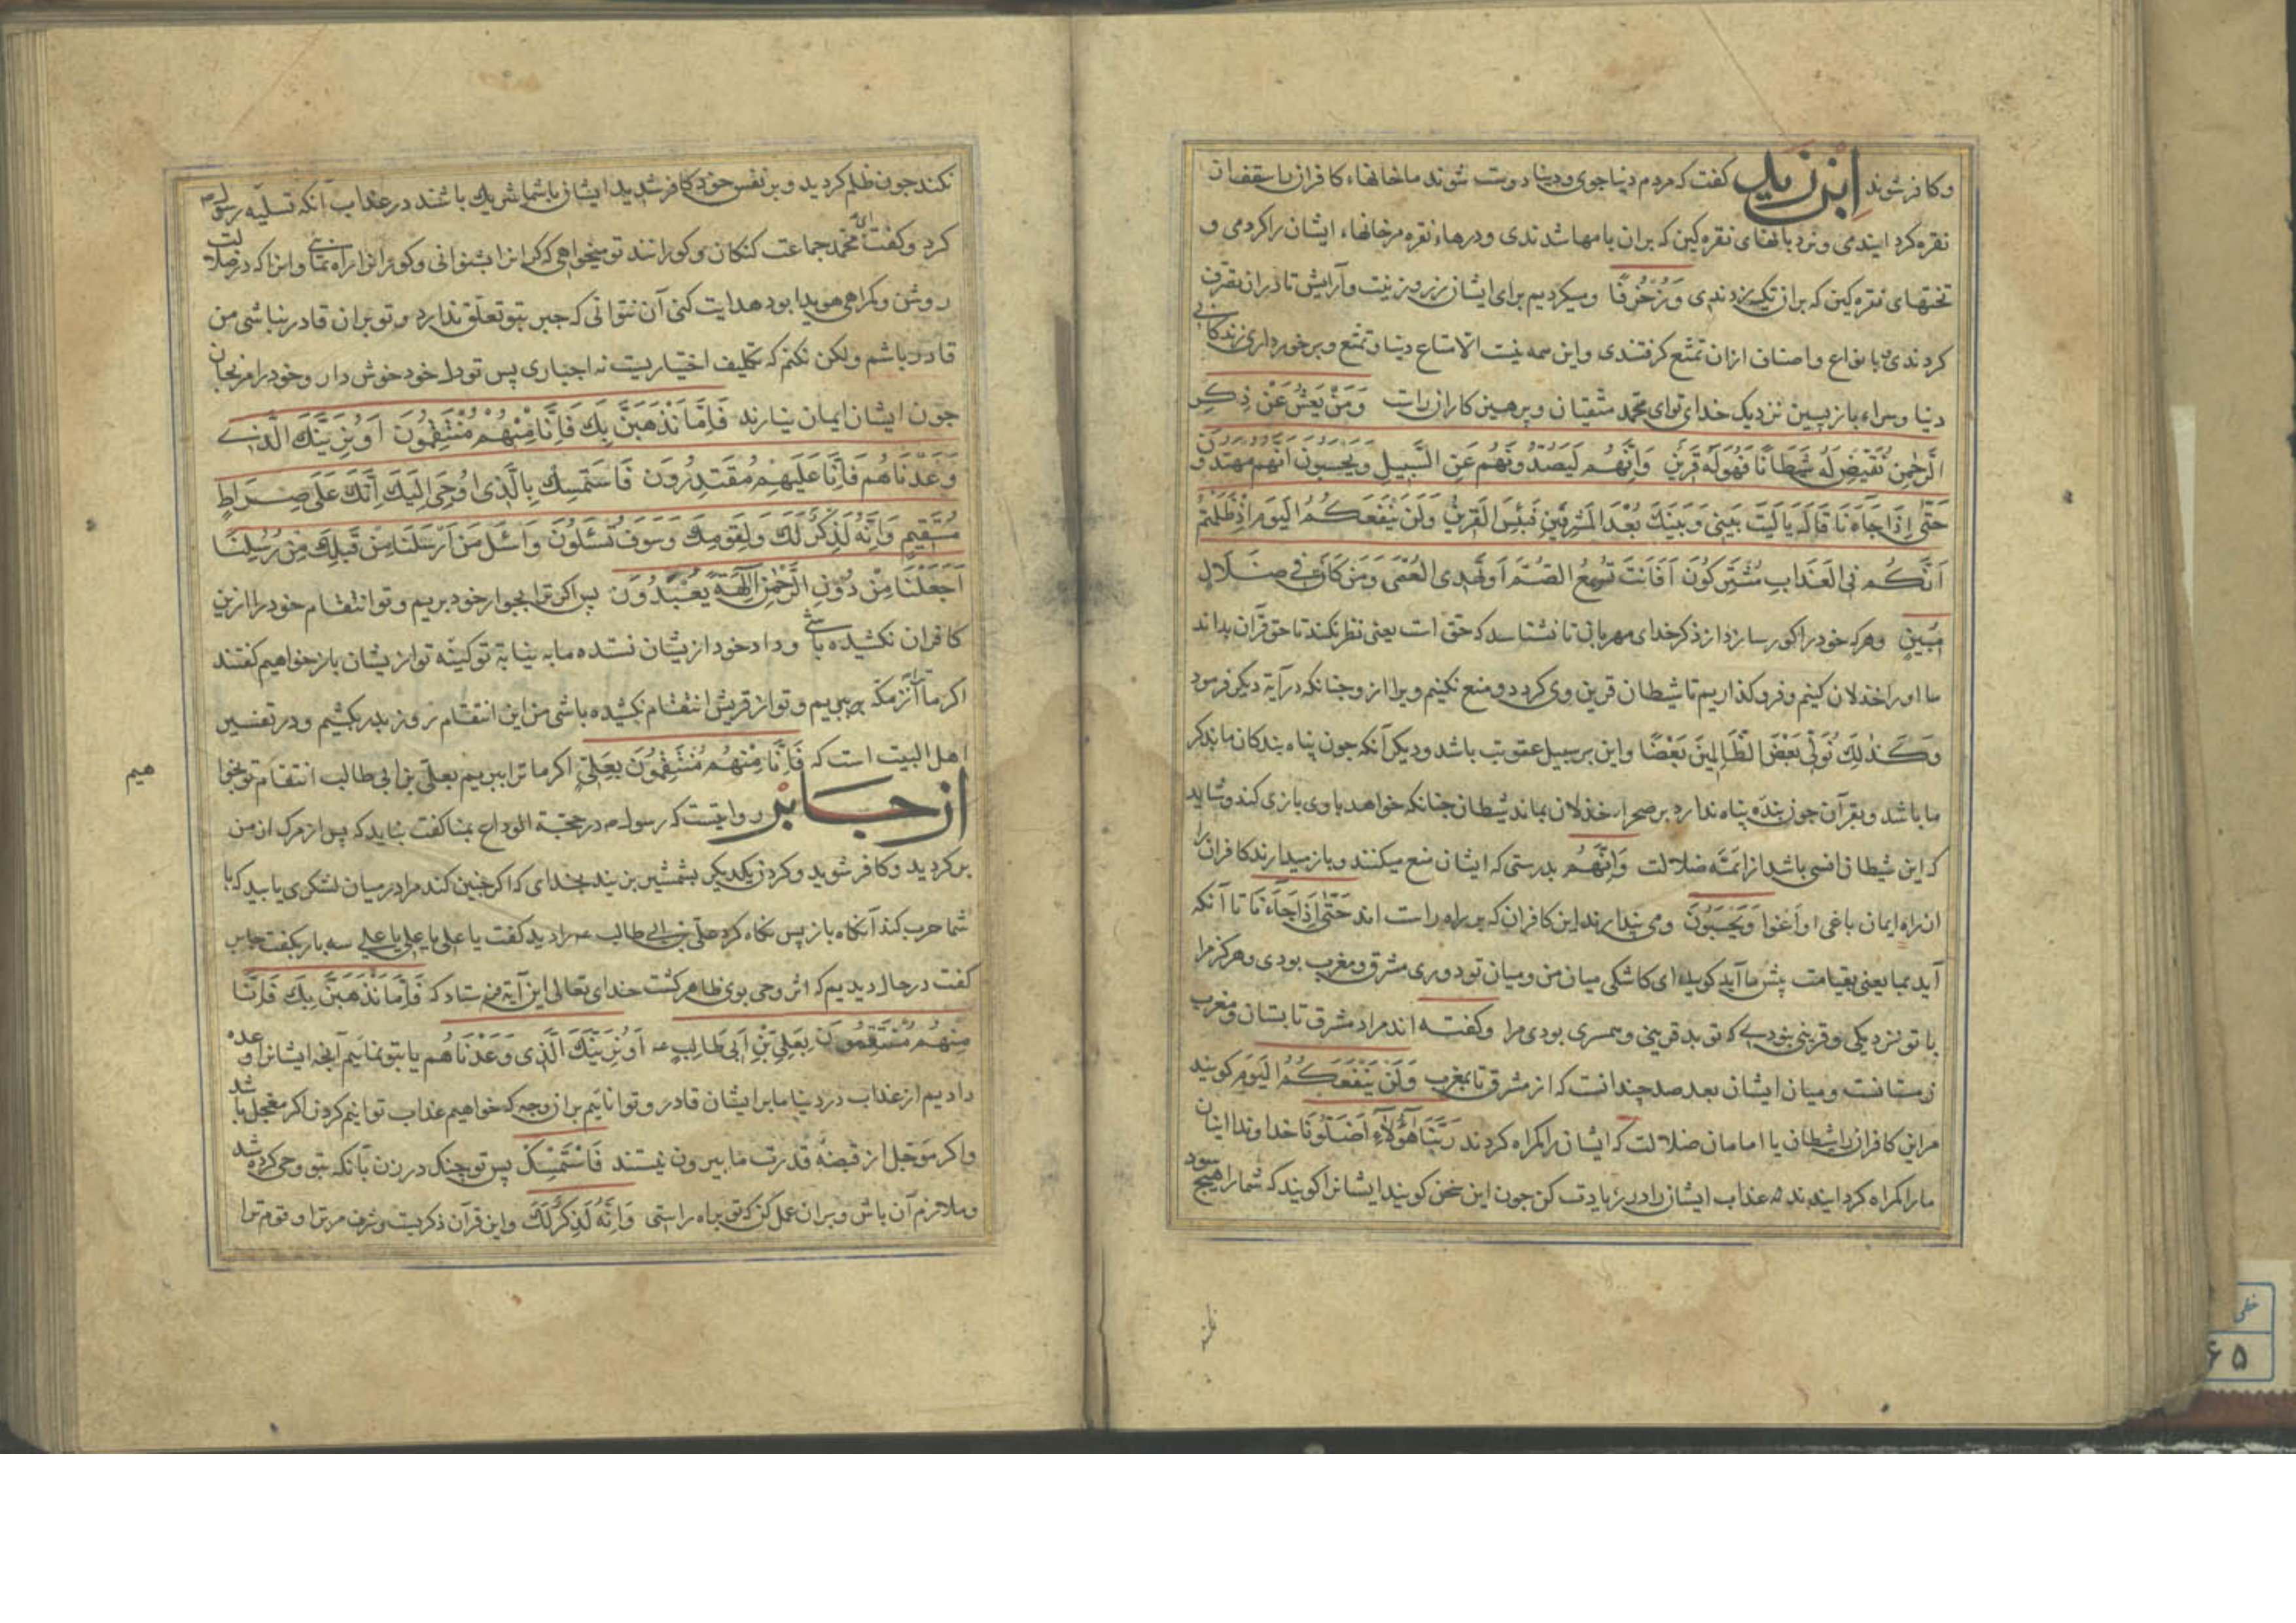 وکافر شوند ابن زید گفت که مردم دنیا جوی و دنیا دوست شوند ما خانهاء کافران را سقفها از
نقره کرد ایندمی و نردبانهای نقره کین که بران بامها شدندی و درهاء نقره مرخانهاء ایشان را کردمی و
تختهای نقره کین که بران تکیه زدندی وَزُخْرُفًا و میکردیم برای ایشان زر و زینت و آرایش تا دران تصرف
کردندی و بانواع و اصناف ازان تمتع کرفتندی و این همه نیست الا متاع دنیا و تمتع و برخورداری زندکانی
دنیا و سراء باز پسین نزدیک خدای تو ای محمد متقیان و پرهیزکاران راست وَمَنْ يَعْشُ عَنْ ذِكْرِ
الرَّحْمٰنِ نُقَيِّضْ لَهُ شَيْطَانًا فَهُوَ لَهُ قَرِينٌ وَاِنَّهُمْ لَيَصُدُّونَهُمْ عَنِ السَّبِيلِ وَيَحْسَبُونَ اَنَّهُمْ مُهْتَدُونَ
حَتّٰى اِذَا جَاءَنَا قَالَ يَا لَيْتَ بَيْنِي وَبَيْنَكَ بُعْدَ الْمَشْرِقَيْنِ فَبِئْسَ الْقَرِينُ وَلَنْ يَنْفَعَكُمُ الْيَوْمَ اِذْ ظَلَمْتُمْ
اَنَّكُمْ فِي الْعَذَابِ مُشْتَرِكُونَ اَفَاَنْتَ تُسْمِعُ الصُّمَّ اَوْ تَهْدِي الْعُمْيَ وَمَنْ كَانَ فِي ضَلَالٍ
مُبِينٍ وهرکه خود را کور سازد از ذکر خدای مهربان تا نشناسد که حق است یعنی نظر نکند تا حق قرآن بداند
ما او را خذلان کنیم و فرو کذاریم تا شیطان قرین وی کردد و منع نکنیم ویرا ازو چنانکه در آیة دیکر فرمود
وَكَذٰلِكَ نُوَلِّي بَعْضَ الظَّالِمِينَ بَعْضًا و این بر سبیل عقوبت باشد و دیکر آنکه چون پناه بندکان ما بذکر
ما باشد و بقرآن چون بنده پناه ندارد بر صحراء خذلان بماند شیطان چنانکه خواهد با وی بازی کند و شاید
که این شیطان انسی باشد از ائمّه ضلالت وَاِنَّهُمْ بدرستی که ایشان منع میکنند و باز میدارند کافران را
از راه ایمان باغی او اغوا وَيَحْسَبُونَ ومی پندارند این کافران که بر راه راست اند حَتّٰى اِذَا جَاءَنَا تا آنکه
آید بما یعنی بقیامت پیش ما آید کوید ای کاشکی میان من و میان تو دوری مشرق و مغرب بودی و هرکز مرا
با تو نزدیکی و قرینی نبودے که تو بد قرینی و همسری بودی مرا و کفته اند مراد مشرق تابستان و مغرب
زمستانست و میان ایشان بعد صد چندانست که از مشرق تا بمغرب وَلَنْ يَنْفَعَكُمُ الْيَوْمَ کویند
مر این کافران را شیطان یا امامان ضلالت که ایشان را کمراه کردند رَبَّنَا هٰؤُلَاءِ اَضَلُّونَا خداوندا اینان
ما را کمراه کرد ایندند عذاب ایشان را درزیادت کن چون این سخن کویند ایشانرا کویند که شما را هیچ سود
نکند چون ظلم کردید و بر نفس خود کافر شدید ایشان با شما شریك باشند در عذاب آنکه تسلیه رسول
کرد و کفت ای محمد جماعت کنکان و کورانند تو میخواهی که کرانرا بشنوانی و کورانرا راه نمائی و انرا که در ضلالت
روشن و کمراهی هویدا بود هدایت کنی آن نتوانی که جبر بتو تعلق ندارد و تو بران قادر نباشی من
قادر باشم ولکن نکنم که تکلیف اختیاریست نه اجباری پس تو دل خود خوش دار و خود را مرنجان
چون ایشان ایمان نیارند فَاِمَّا نَذْهَبَنَّ بِكَ فَاِنَّا مِنْهُمْ مُنْتَقِمُونَ اَوْ نُرِيَنَّكَ الَّذِي
وَعَدْنَاهُمْ فَاِنَّا عَلَيْهِمْ مُقْتَدِرُونَ فَاسْتَمْسِكْ بِالَّذِي اُوحِيَ اِلَيْكَ اِنَّكَ عَلَى صِرَاطٍ
مُسْتَقِيمٍ وَاِنَّهُ لَذِكْرٌ لَكَ وَلِقَوْمِكَ وَسَوْفَ تُسْئَلُونَ وَاسْئَلْ مَنْ اَرْسَلْنَا مِنْ قَبْلِكَ مِنْ رُسُلِنَا
اَجَعَلْنَا مِنْ دُونِ الرَّحْمٰنِ اٰلِهَةً يُعْبَدُونَ پس اکر ترا بجوار خود بریم و تو انتقام خود را ازین
کافران نکشیده باشی و داد خود ازیشان نستده ما به نیابة تو کینه تو ازیشان باز خواهیم کفتند
اکر ما ترا از مکه ببریم و تو از قریش انتقام نکشیده باشی من این انتقام روز بدر بکشیم و در تفسیر
اهل البیت است که فَاِنَّا مِنْهُمْ مُنْتَقِمُونَ بِعَلِيٍّ اکر ما ترا ببریم بعلی بن ابی طالب انتقام تو بخوا
هیم
از جابر روایتست که رسول م در حجّة الوداع بمنا کفت نباید که پس از مرک از من
برکردید و کافر شوید و کردن یکدیکر بشمشیر بزنید بخدای که اکر چنین کنند مرا در میان لشکری یابید که با
شما حرب کند آنکاه باز پس نکاه کرد علی بن ابی طالب عم را دید کفت یا علی یا علی یا علے سه بار بکفت جابر
کفت در حال دیدیم که اثر وحی بوی ظاهر کشت خدای تعالی این آیة فرستاد که فَاِمَّا نَذْهَبَنَّ بِكَ فَاِنَّا
مِنْهُمْ مُنْتَقِمُونَ بِعَلِيِّ بْنِ اَبِي طَالِبٍ عم اَوْ نُرِيَنَّكَ الَّذِي وَعَدْنَاهُمْ یا بتو نمائیم آنچه ایشانرا وعده
دادیم از عذاب در دنیا ما بر ایشان قادر و توانائیم بران وجه که خواهیم عذاب توانیم کردن اکر معجل باشد
و اکر مؤجل از قبضهٔ قدرت ما بیرون نیستند فَاسْتَمْسِكْ پس تو چنک در زن بآنکه بتو وحی کرده شد
و ملازم آن باش و بران عمل کن که تو براه راستی وَاِنَّهُ لَذِكْرٌ لَكَ و این قرآن ذکریست و شرف مر ترا و قوم ترا
خطی
۶۵